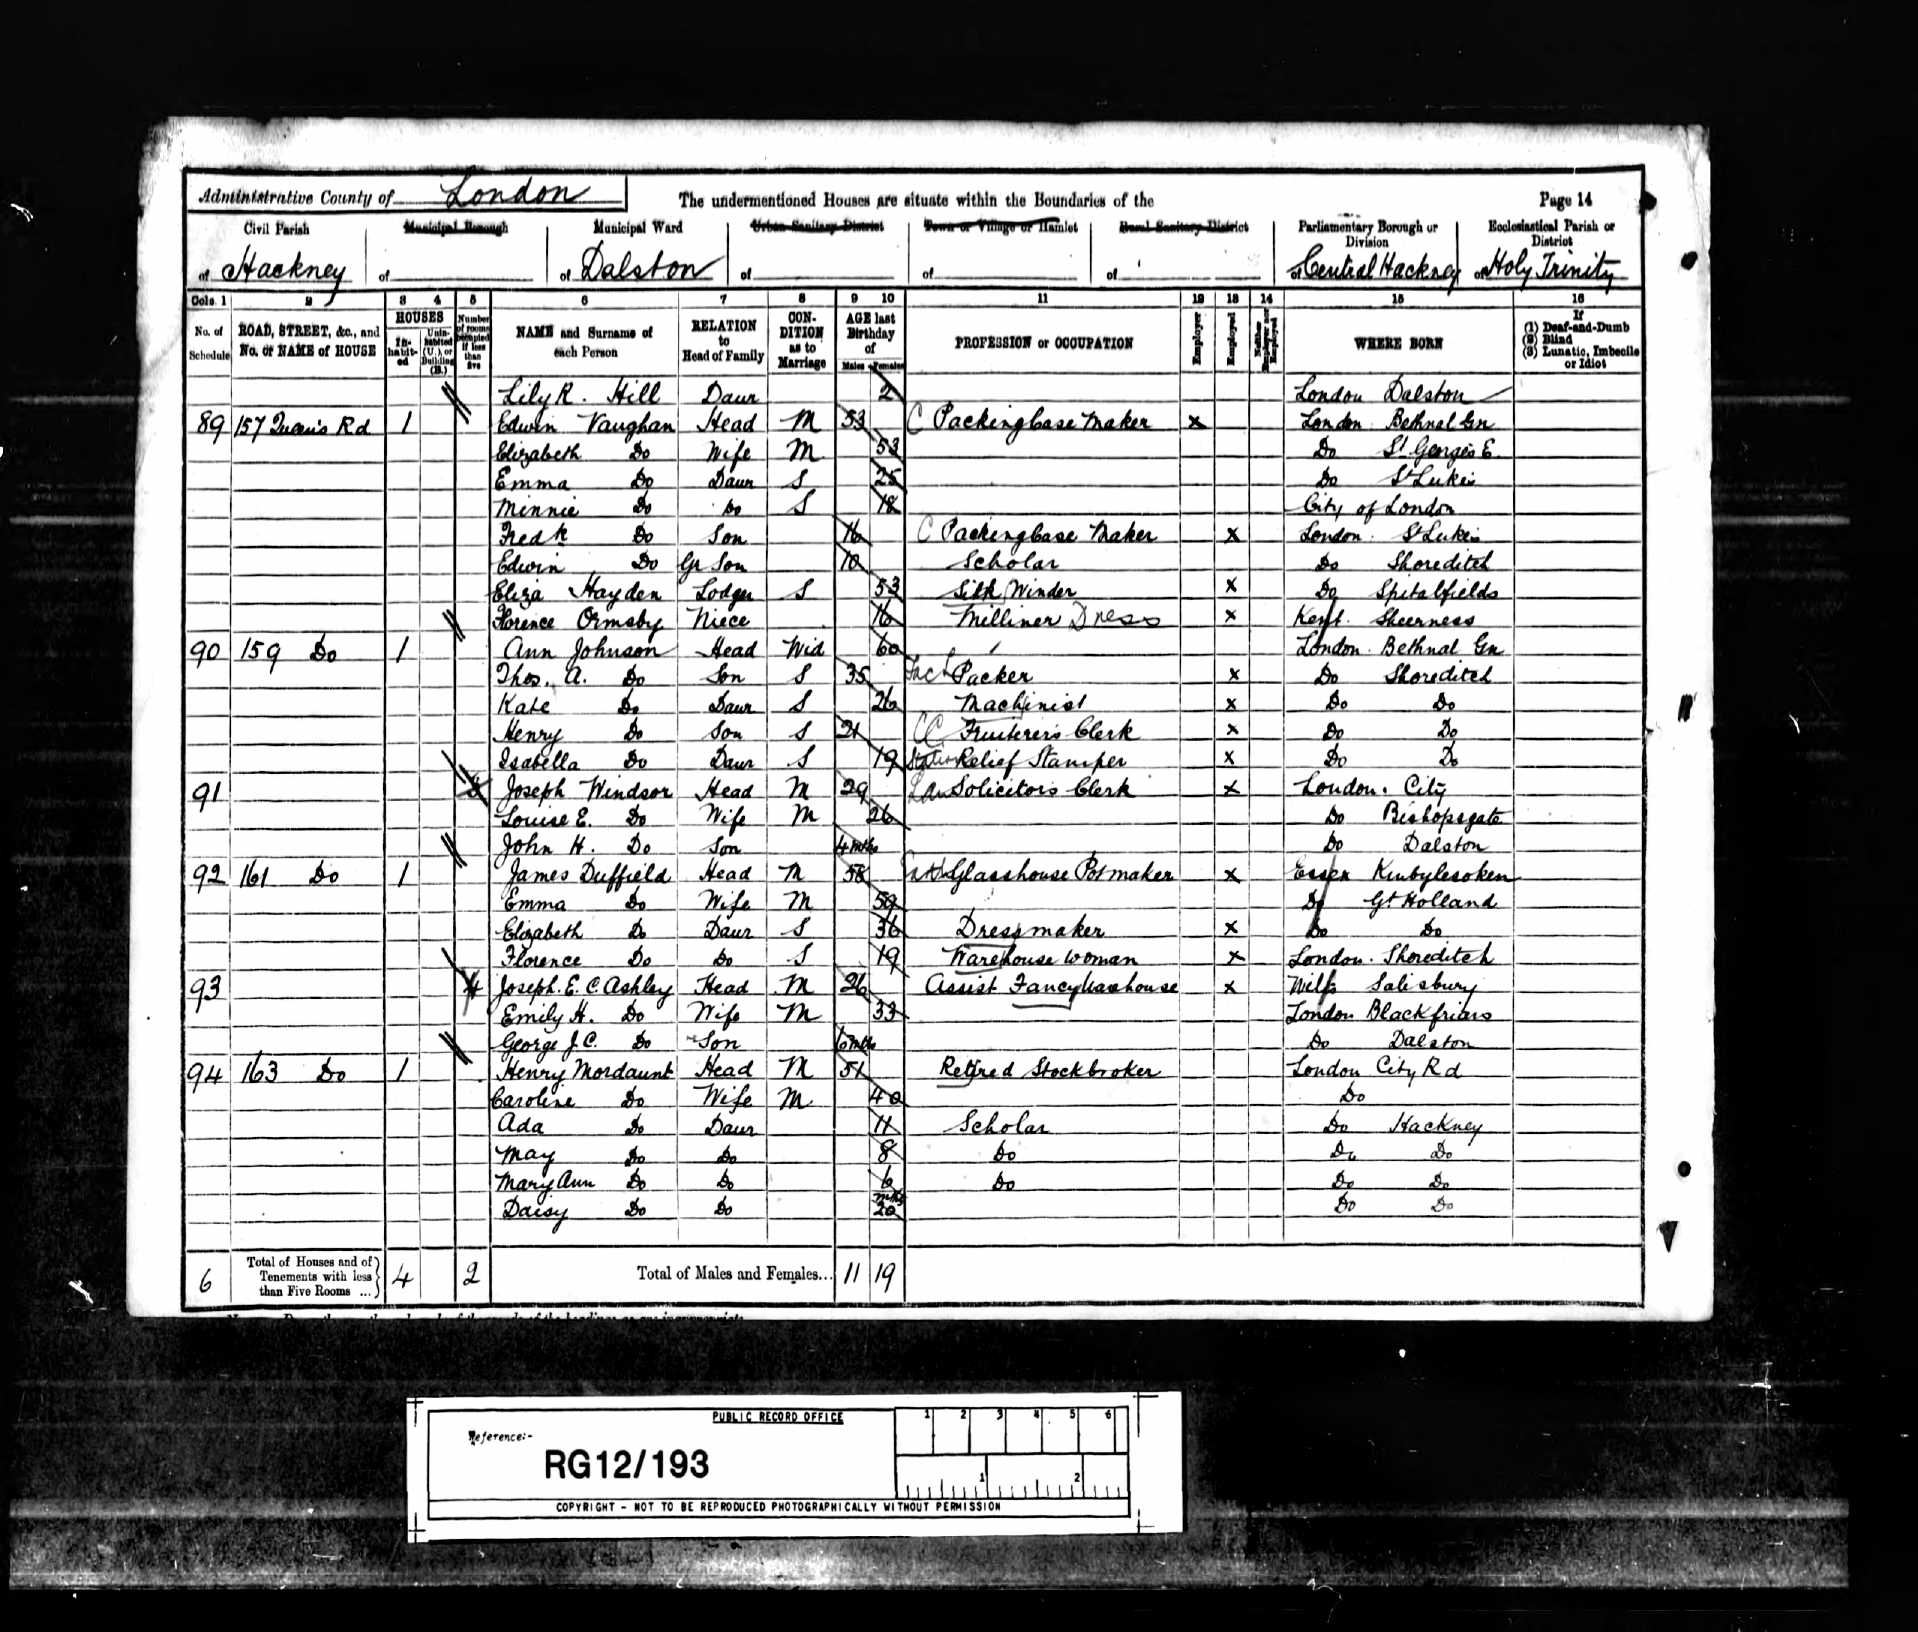 Administrative County of London The undermentioned Houses are situate within the Boundaries of the Page 14
Civil Parish Municipal Borough Municipal Ward Urban Sanitary District Town or Village or Hamlet Rural Sanitary District Parliamentary Borough or Division Ecclesiastical Parish or District
of Hackney of of Dalston of of of of Central Hackney of Holy Trinity
Cols. 1 2 3 4 5 6 7 8 9 10 11 12 13 14 15 16
No. of Schedule ROAD, STREET, &c., and No. or NAME of HOUSE HOUSES In-habit-ed Unin-habited (U.), or Building (B.) Number of rooms occupied if less than five NAME and Surname of each Person RELATION to Head of Family CON-DITION as to Marriage AGE last Birthday of Males Females PROFESSION or OCCUPATION Employer Employed Neither Employer nor Employed WHERE BORN If (1) Deaf-and-Dumb (2) Blind (3) Lunatic, Imbecile or Idiot
Lily R. Hill Daur 2 London Dalston
89 157 Queen's Rd 1 Edwin Vaughan Head M 53 C Packing Case Maker x London Bethnal Gn
Elizabeth Do Wife M 53 Do St Georges E.
Emma Do Daur S 25 Do St Lukes
Minnie Do Do S 18 City of London
Fredk Do Son 16 C Packing Case Maker x London St Lukes
Edwin Do Gr Son 10 Scholar Do Shoreditch
Eliza Hayden Lodger S 53 Silk Winder x Do Spitalfields
Florence Ormsby Niece 16 Milliner Dress x Kent Sheerness
90 159 Do 1 Ann Johnson Head Wid 60 London Bethnal Gn
Thos. A. Do Son S 35 Packer x Do Shoreditch
Kate Do Daur S 26 Machinist x Do Do
Henry Do Son S 21 CC Fruiterers Clerk x Do Do
Isabella Do Daur S 19 Relief Stamper x Do Do
91 Joseph Windsor Head M 29 Law Solicitors Clerk x London. City
Louise E. Do Wife M 26 Do Bishopsgate
John H. Do Son 4 mths Do Dalston
92 161 Do 1 James Duffield Head M 58 Glasshouse Potmaker x Essex Kirbylesoken
Emma Do Wife M 59 Do Gt Holland
Elizabeth Do Daur S 36 Dressmaker x Do Do
Florence Do Do S 19 Warehouse woman x London. Shoreditch
93 4 Joseph. E. C. Ashley Head M 26 Assist Fancy Warehouse x Wilts Salisbury
Emily H. Do Wife M 33 London Blackfriars
George J. C. Do Son 6 mths Do Dalston
94 163 Do 1 Henry Mordaunt Head M 51 Retired Stockbroker London City Rd
Caroline Do Wife M 40 Do
Ada Do Daur 11 Scholar Do Hackney
May Do Do 8 Do Do Do
Mary Ann Do Do 6 Do Do Do
Daisy Do Do mths 20 Do Do
6 Total of Houses and of Tenements with less than Five Rooms ... 4 2 Total of Males and Females... 11 19
PUBLIC RECORD OFFICE 1 2 3 4 5 6
Reference:-
RG12/193 1 2
COPYRIGHT - NOT TO BE REPRODUCED PHOTOGRAPHICALLY WITHOUT PERMISSION